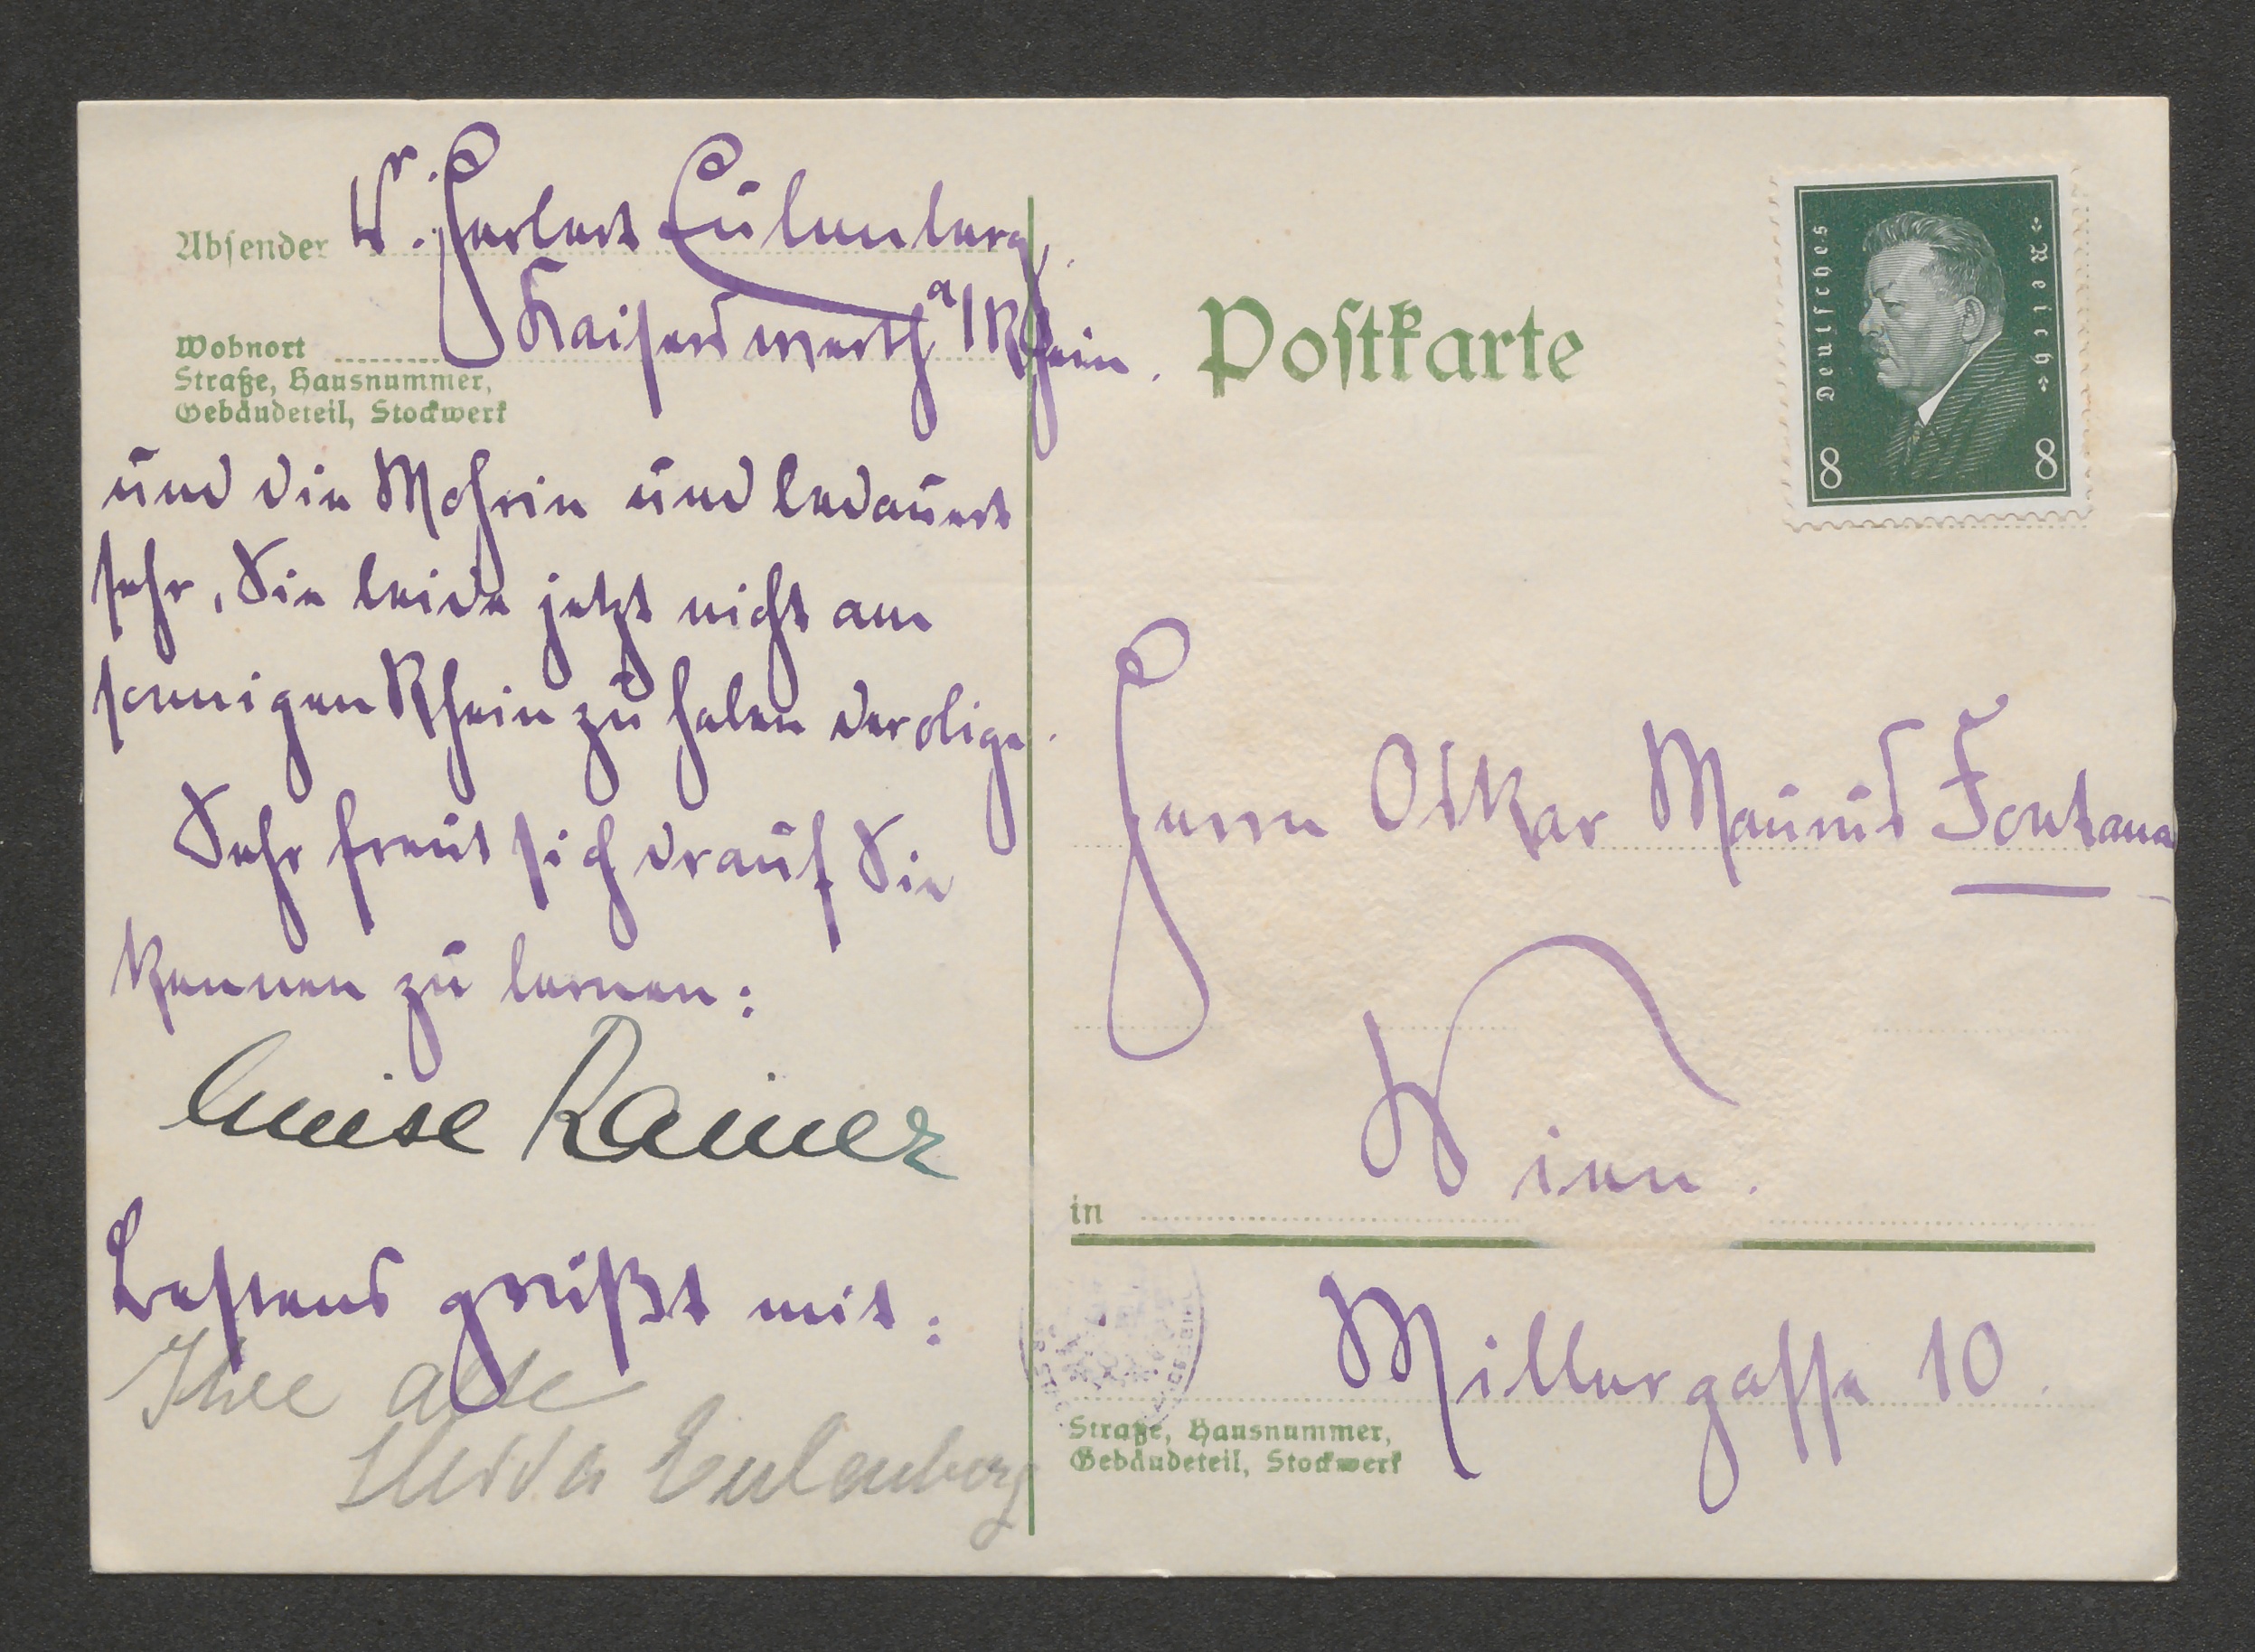 Absender Dr. Herbert Eulenberg,
Kaiserswerth a/Rhein.
Wohnort
Straße, Hausnummer,
Gebäudeteil, Stockwerk
und die Mohrin und bedauert
sehr, Sie beide jetzt nicht am
sonnigen Rhein zu haben der obige.
Sehr freut sich drauf Sie
kennen zu lernen:
Luise Rainer
Bestens grüßt mit:
Ihre alte
Hedda Eulenberg
Postkarte
Deutsches Reich
8 8
Herrn Oskar Maurus Fontana
Wien.
in
Millergasse 10.
Straße, Hausnummer,
Gebäudeteil, Stockwerk